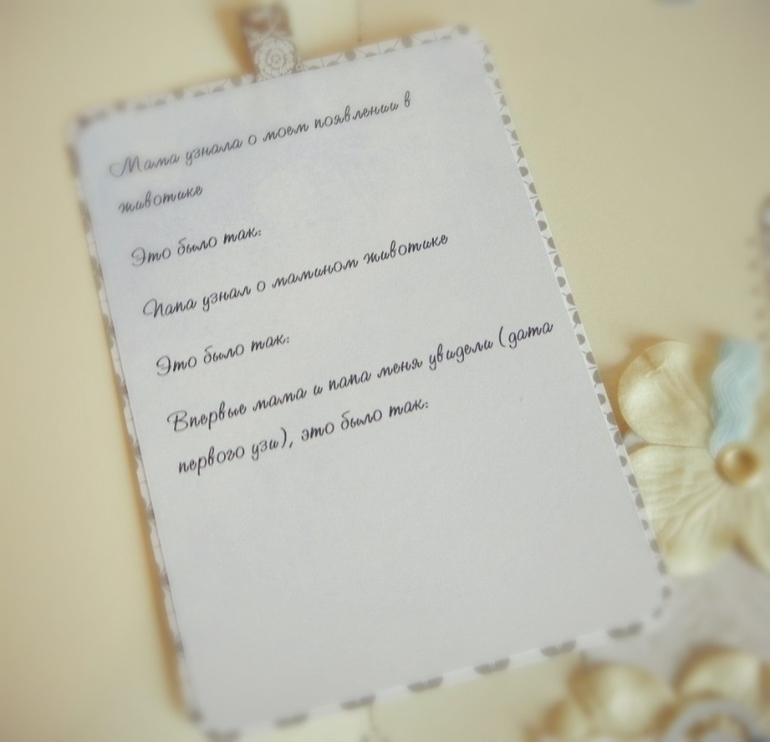 Мама узнала о моем появлении в
животике
Это было так:
Папа узнал о мамином животике
Это было так:
Впервые мама и папа меня увидели (дата
первого узи), это было так: